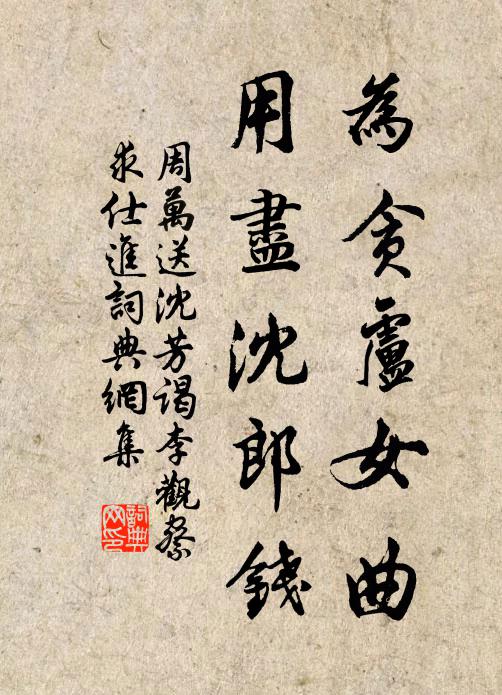 為貪盧女曲
用盡沈郎錢
周萬送沈芳謁李觀察
求仕進詞典網集
詞典
网印